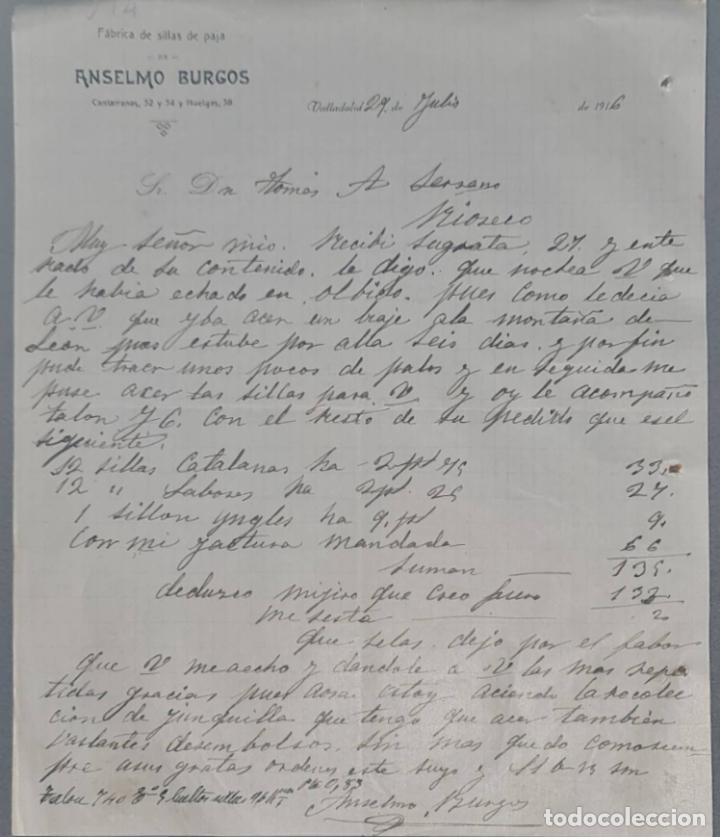 Fábrica de sillas de paja
DE
ANSELMO BURGOS
Cantarranas, 32 y 34 y Huelgas, 38
Valladolid 29 de Julio de 1916
Sr. Dn Tomás A Serrano
Rioseco
Muy Señor mio. Recibi Sugrata, 27. y ente
rado de su contenido. le digo. que nochea V que
le habia echado en, olbido. pues como ledecia
a V que yba acer un biaje ala montaña de
León pues estube por alla seis dias. y por fin
pude traer unos pocos de palos y en seguida me
puse acer las sillas para V y oy le acompaño
talon y G. con el resto de su pedido que es el
siguiente.
12 sillas Catalanas ha 2 pts 75 33.
12 " ha 2 pts. 25 27.
1 sillon yngles ha 9. pts 9.
Con mi factura mandada 66
Suman 135.
deduzco migiro que creo 132
me resta
que selas. dejo por el fabor
que V me aecho y dandole a V las mas repe
tidas gracias pues aora estoy aciendo la recolec
cion de junquilla que tengo que acer también
vastantes desembolsos. sin mas quedo como siem
pre a sus gratas ordenes este suyo y
Anselmo Burgos
todocoleccion